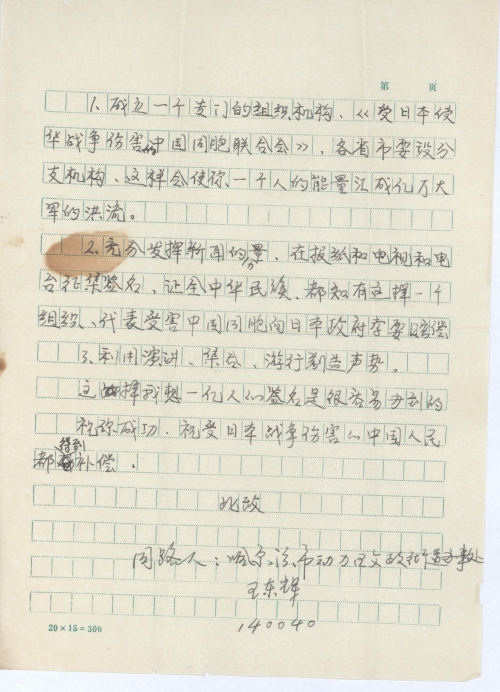 第 页
1. 成立一个专门的组织机构、《受日本侵
华战争伤害的中国同胞联合会》，各省市要设分
支机构、这样会使你一个人的能量汇成亿万大
军的洪流。
2. 充分发挥新闻的量，在报纸和电视和电
台征集签名、让全中华民族、都知有这择一个
组织、代表受害中国同胞向日本政府索要赔偿
3. 利用演讲、集会、游行制造声势。
这择我想一亿人们签名是很容易办到的
祝你成功．祝受日本战争伤害的中国人民
都得到补偿．
此致
同路人：哈尔滨市动力区文政街道办事处
王东辉
140040
20×15=300